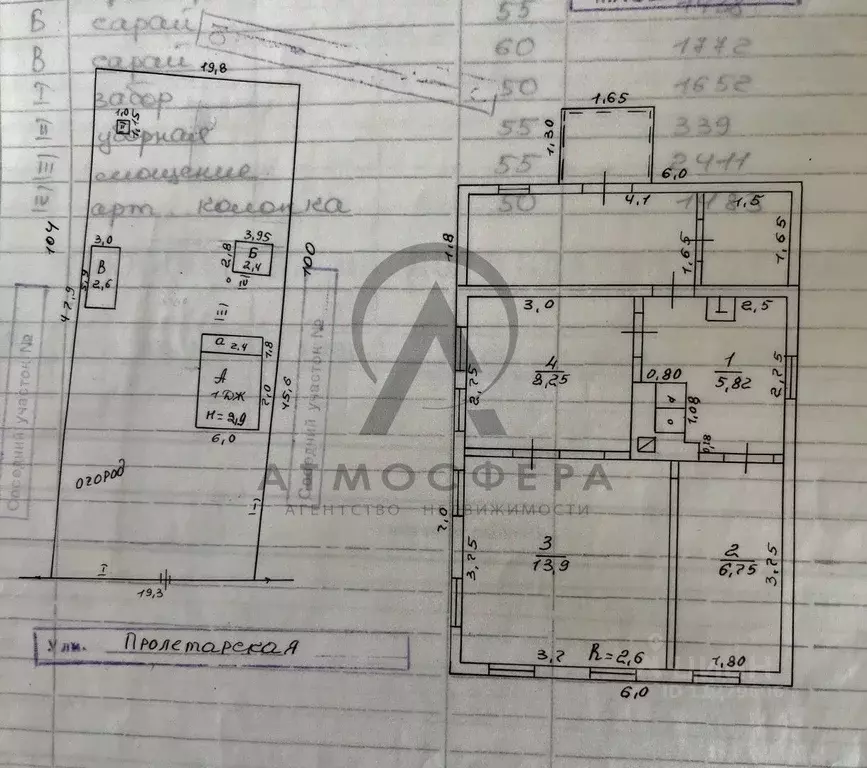 Б сарай 55
В сарай 60 1772
I-) забор 50 1652
II-) уборная 55 339
III) смощение 55 2411
IV) арт. колонка 50
19,8
1,0
1,15
104
100
47,9
45,6
3,0
В
2,6
5,9
3,95
Б
2,4
2,8
IV)
III)
а 2,4
1,8
А
1 ДЖ
Н=2,9
7,0
6,0
ОГОРОД
I-)
I
19,3
Соседний участок №
Соседний участок №
ул. Пролетарская
1,65
1,30
6,0
4,1
1,5
1,8
1,65
1,65
3,0
2,5
4
8,25
2,75
0,80
1
5,82
2,75
1,08
0,18
7,0
3
13,9
3,75
2
6,75
3,75
3,7
R=2,6
1,80
6,0
АТМОСФЕРА
АГЕНТСТВО НЕДВИЖИМОСТИ